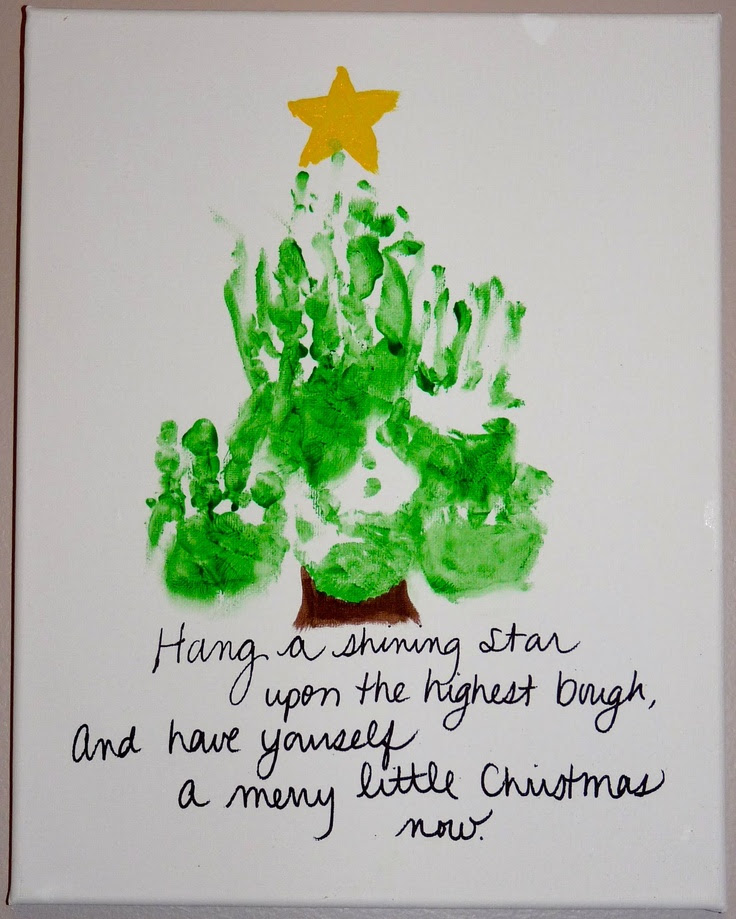 Hang a shining star
upon the highest bough,
And have yourself
a merry little Christmas
now.